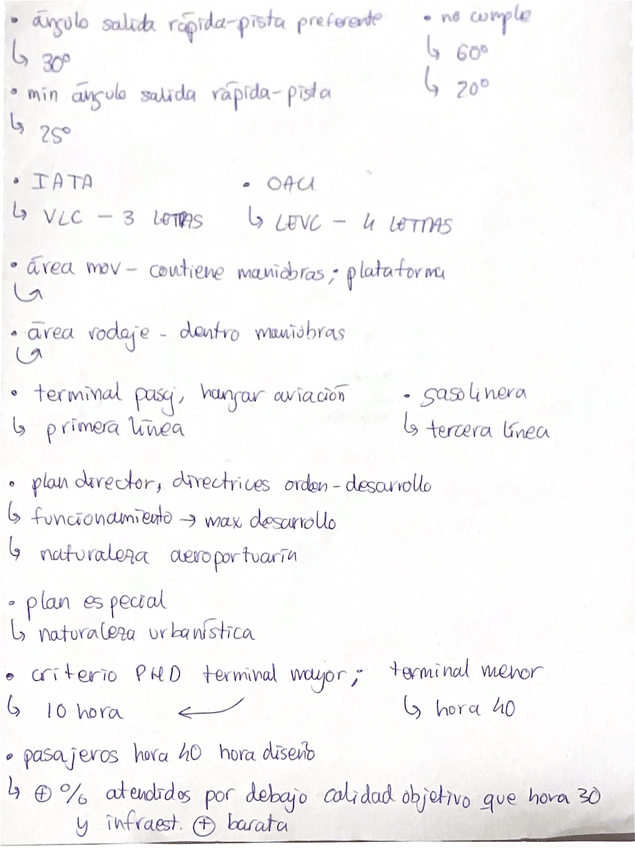 • ángulo salida rápida-pista preferente • no cumple
↳ 30º ↳ 60º
↳ 20º
• min ángulo salida rápida-pista
↳ 25º
• IATA • OACI
↳ VLC - 3 LETRAS ↳ LEVC - 4 LETRAS
• área mov - contiene maniobras; plataforma
• área rodaje - dentro maniobras
• terminal pasj, hangar aviación • gasolinera
↳ primera línea ↳ tercera línea
• plan director, directrices orden-desarrollo
↳ funcionamiento → max desarrollo
↳ naturaleza aeroportuaria
• plan especial
↳ naturaleza urbanística
• criterio PHD terminal mayor; terminal menor
↳ 10 hora ← ↳ hora 40
• pasajeros hora 40 hora diseño
↳ ⊕ % atendidos por debajo calidad objetivo que hora 30
y infraest. ⊕ barata